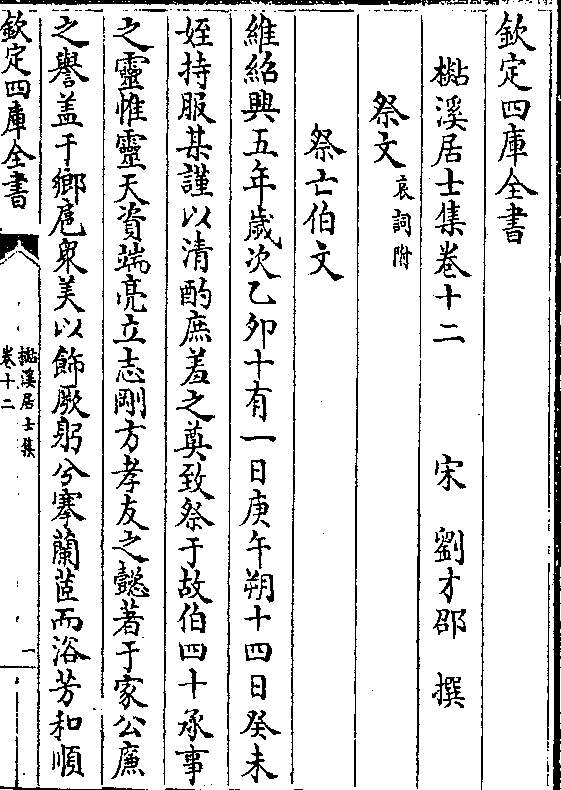 欽定四庫全書
檆溪居士集卷十二　宋　劉才邵　撰
祭文哀詞附
祭亡伯文
維紹興五年歲次乙卯十有一日庚午朔十四日癸未
姪持服某謹以清酌庶羞之奠致祭于故伯四十承事
之靈惟靈天資端亮立志剛方孝友之懿著于家公廉
之譽盖于鄉扈衆美以飾厥躬兮搴蘭茝而浴芳和順
欽定四庫全書
檆溪居士集
卷十二
一